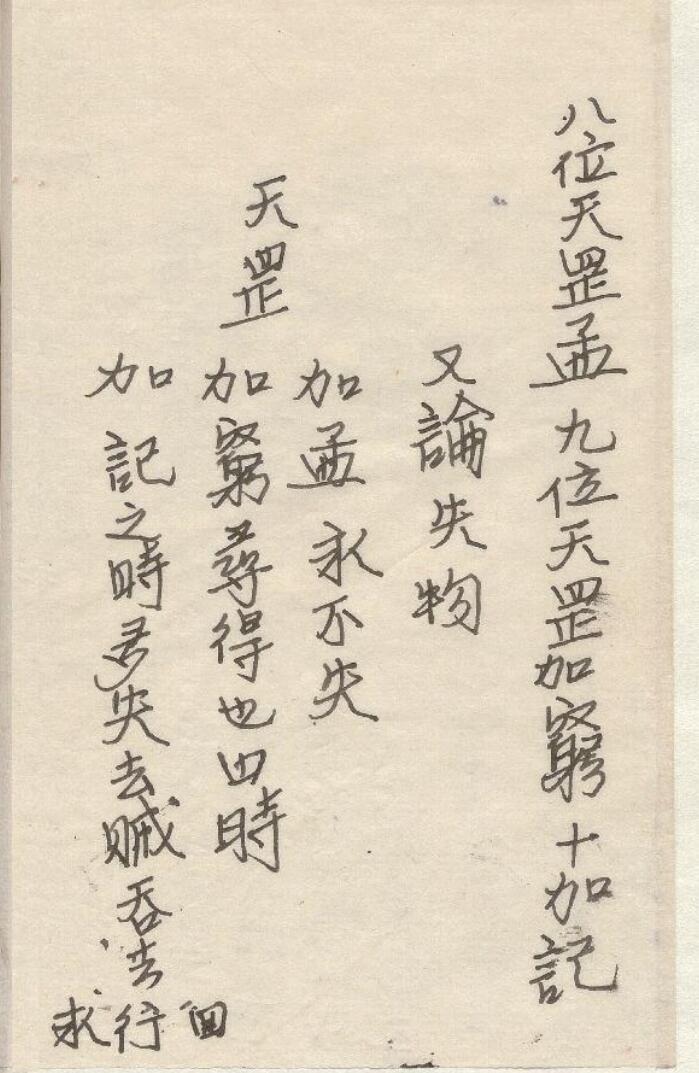 八位天罡孟九位天罡加窮十加記
又論失物
天罡
加孟永不失
加窮尋得也四時
加記之時多失去賊吞去
永行回